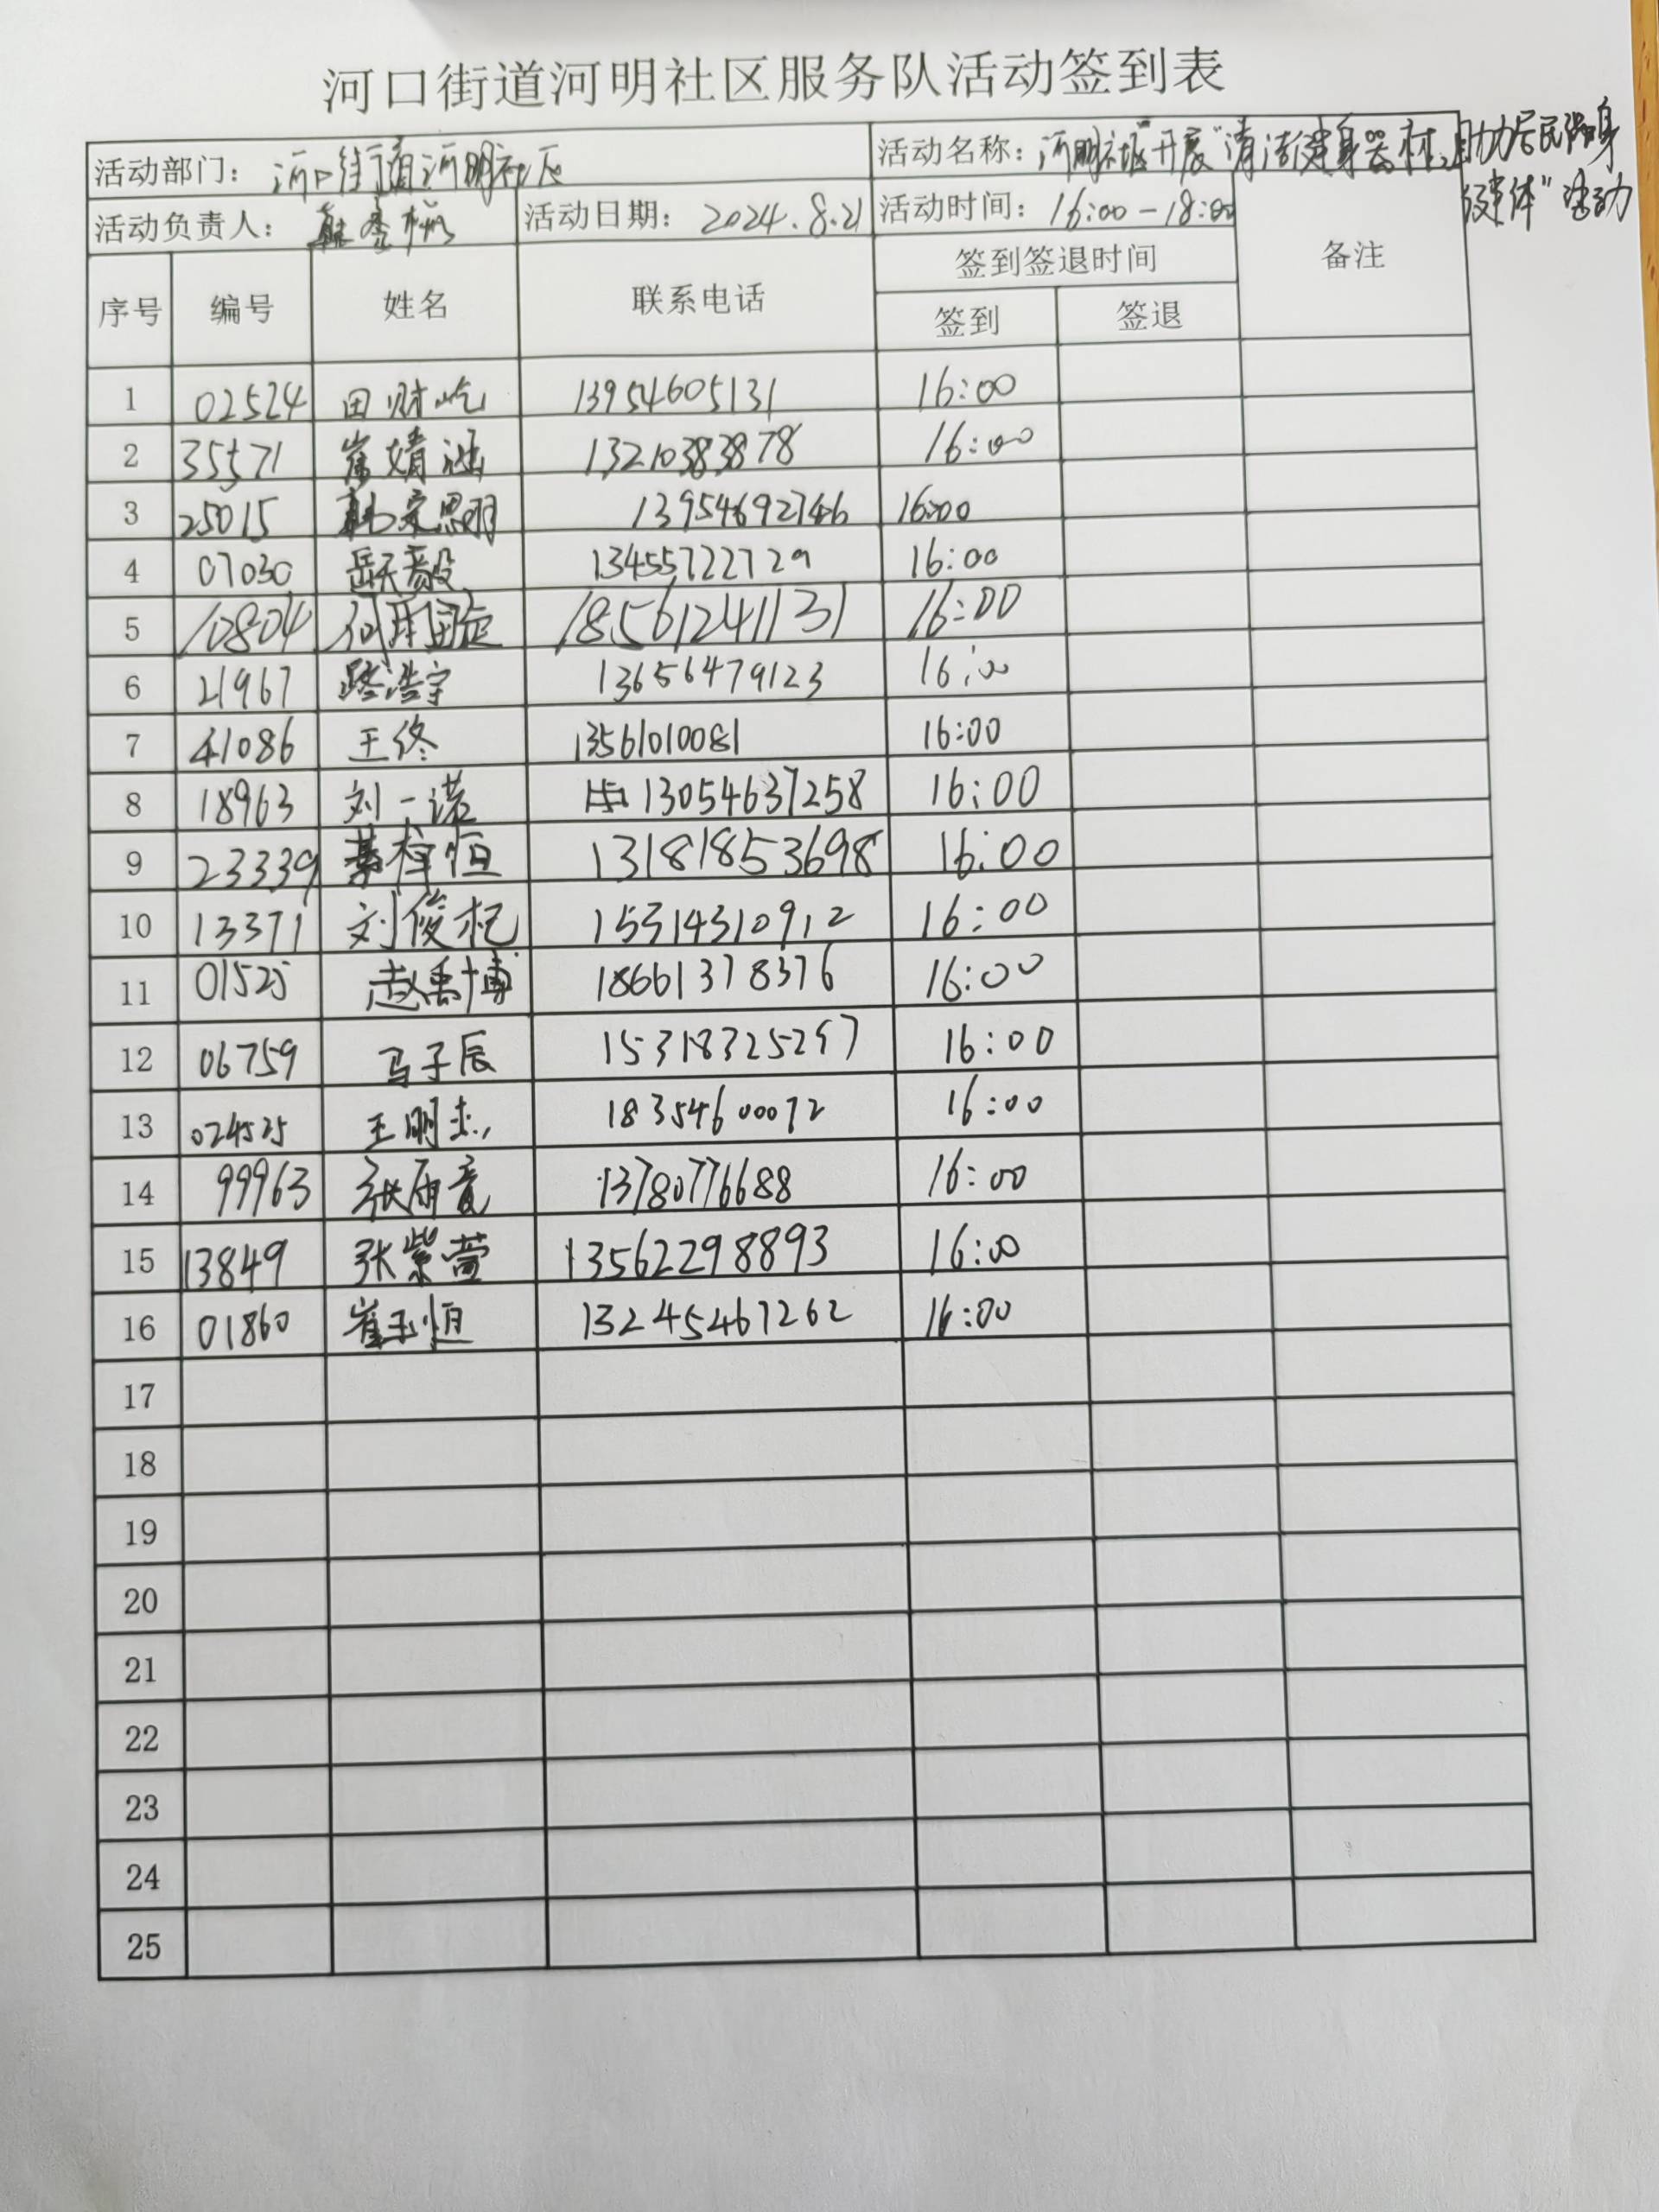 河口街道河明社区服务队活动签到表
活动部门： 河口街道河明社区 活动名称：河明社区开展"清洁健身器材,助力居民强身
健体"活动
活动负责人： 活动日期： 2024.8.21 活动时间： 16:00-18:00
序号 编号 姓名 联系电话 签到签退时间 备注
签到 签退
1 02524 田财屹 13954605131 16:00
2 35571 崔婧涵 13210383878 16:00
3 25015 韩宗思明 13954692746 16:00
4 07030 岳天毅 13455722729 16:00
5 10804 18561241131 16:00
6 21967 路浩宇 13656479123 16:00
7 41086 王终 13561010081 16:00
8 18963 刘一诺 13054637258 16:00
9 23339 綦梓恒 13181853698 16:00
10 13371 刘俊杞 15314310912 16:00
11 01525 赵禹博 18661378376 16:00
12 06759 马子辰 15318325297 16:00
13 024525 王明志 18354600072 16:00
14 99963 张雨意 13780776688 16:00
15 13849 张紫萱 13562298893 16:00
16 01860 崔玉恒 13245467262 16:00
17
18
19
20
21
22
23
24
25